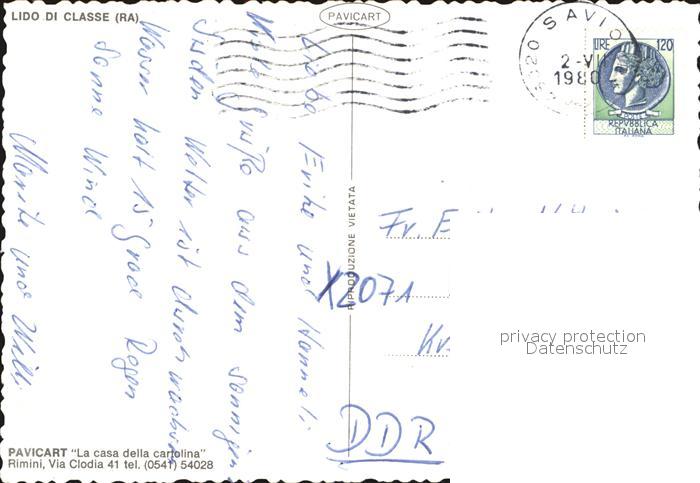 LIDO DI CLASSE (RA)
PAVICART
Liebe Erika und Hanneli
Viele Grüße aus dem sonnigen
Süden Wetter ist durchwachsen
Warm halt 15 Grad Regen
Sonne Wind
Marita und Willi
RIPRODUZIONE VIETATA
SAVIO
2-VII
1980
LIRE 120
REPVBBLICA
ITALIANA
Fr. E
X2071
Kr.
DDR
privacy protection
Datenschutz
PAVICART "La casa della cartolina"
Rimini, Via Clodia 41 tel. (0541) 54028